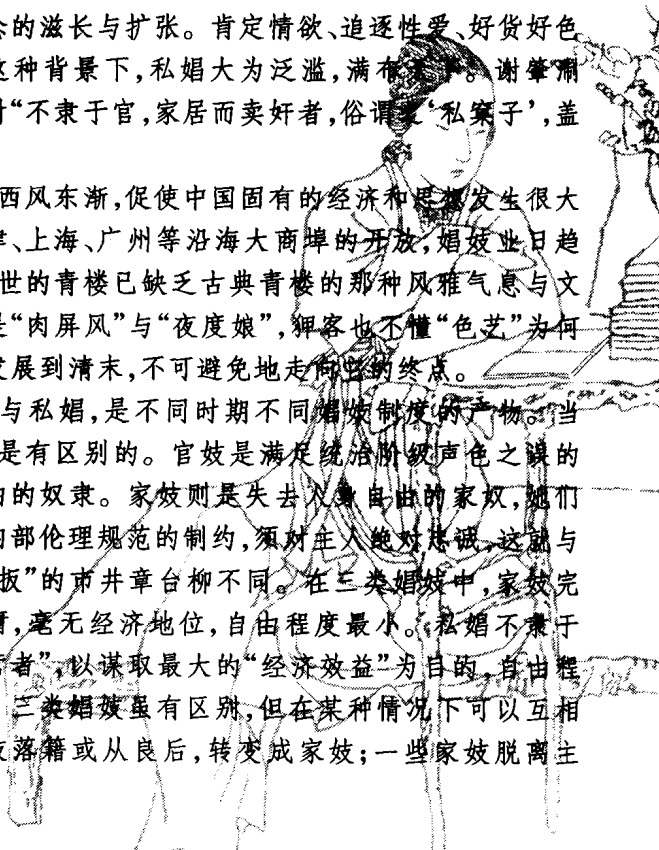 的滋长与扩张。肯定情欲、追逐性爱、好货好色
这种背景下,私娼大为泛滥,满布天下。谢肇淛
“不隶于官,家居而卖奸者,俗谓之‘私窠子’,盖
西风东渐,促使中国固有的经济和思想发生很大
、上海、广州等沿海大商埠的开放,娼妓业日趋
世的青楼已缺乏古典青楼的那种风雅气息与文
是“肉屏风”与“夜度娘”,狎客也不懂“色艺”为何
发展到清末,不可避免地走向它的终点。
与私娼,是不同时期不同娼妓制度的产物。当
是有区别的。官妓是满足统治阶级声色之误的
的奴隶。家妓则是失去人身自由的家奴,她们
内部伦理规范的制约,须对主人绝对忠诚,这就与
扳”的市井章台柳不同。在三类娼妓中,家妓完
,毫无经济地位,自由程度最小。私娼不隶于
者”,以谋取最大的“经济效益”为目的,自由程
三类娼妓虽有区别,但在某种情况下可以互相
落籍或从良后,转变成家妓;一些家妓脱离主